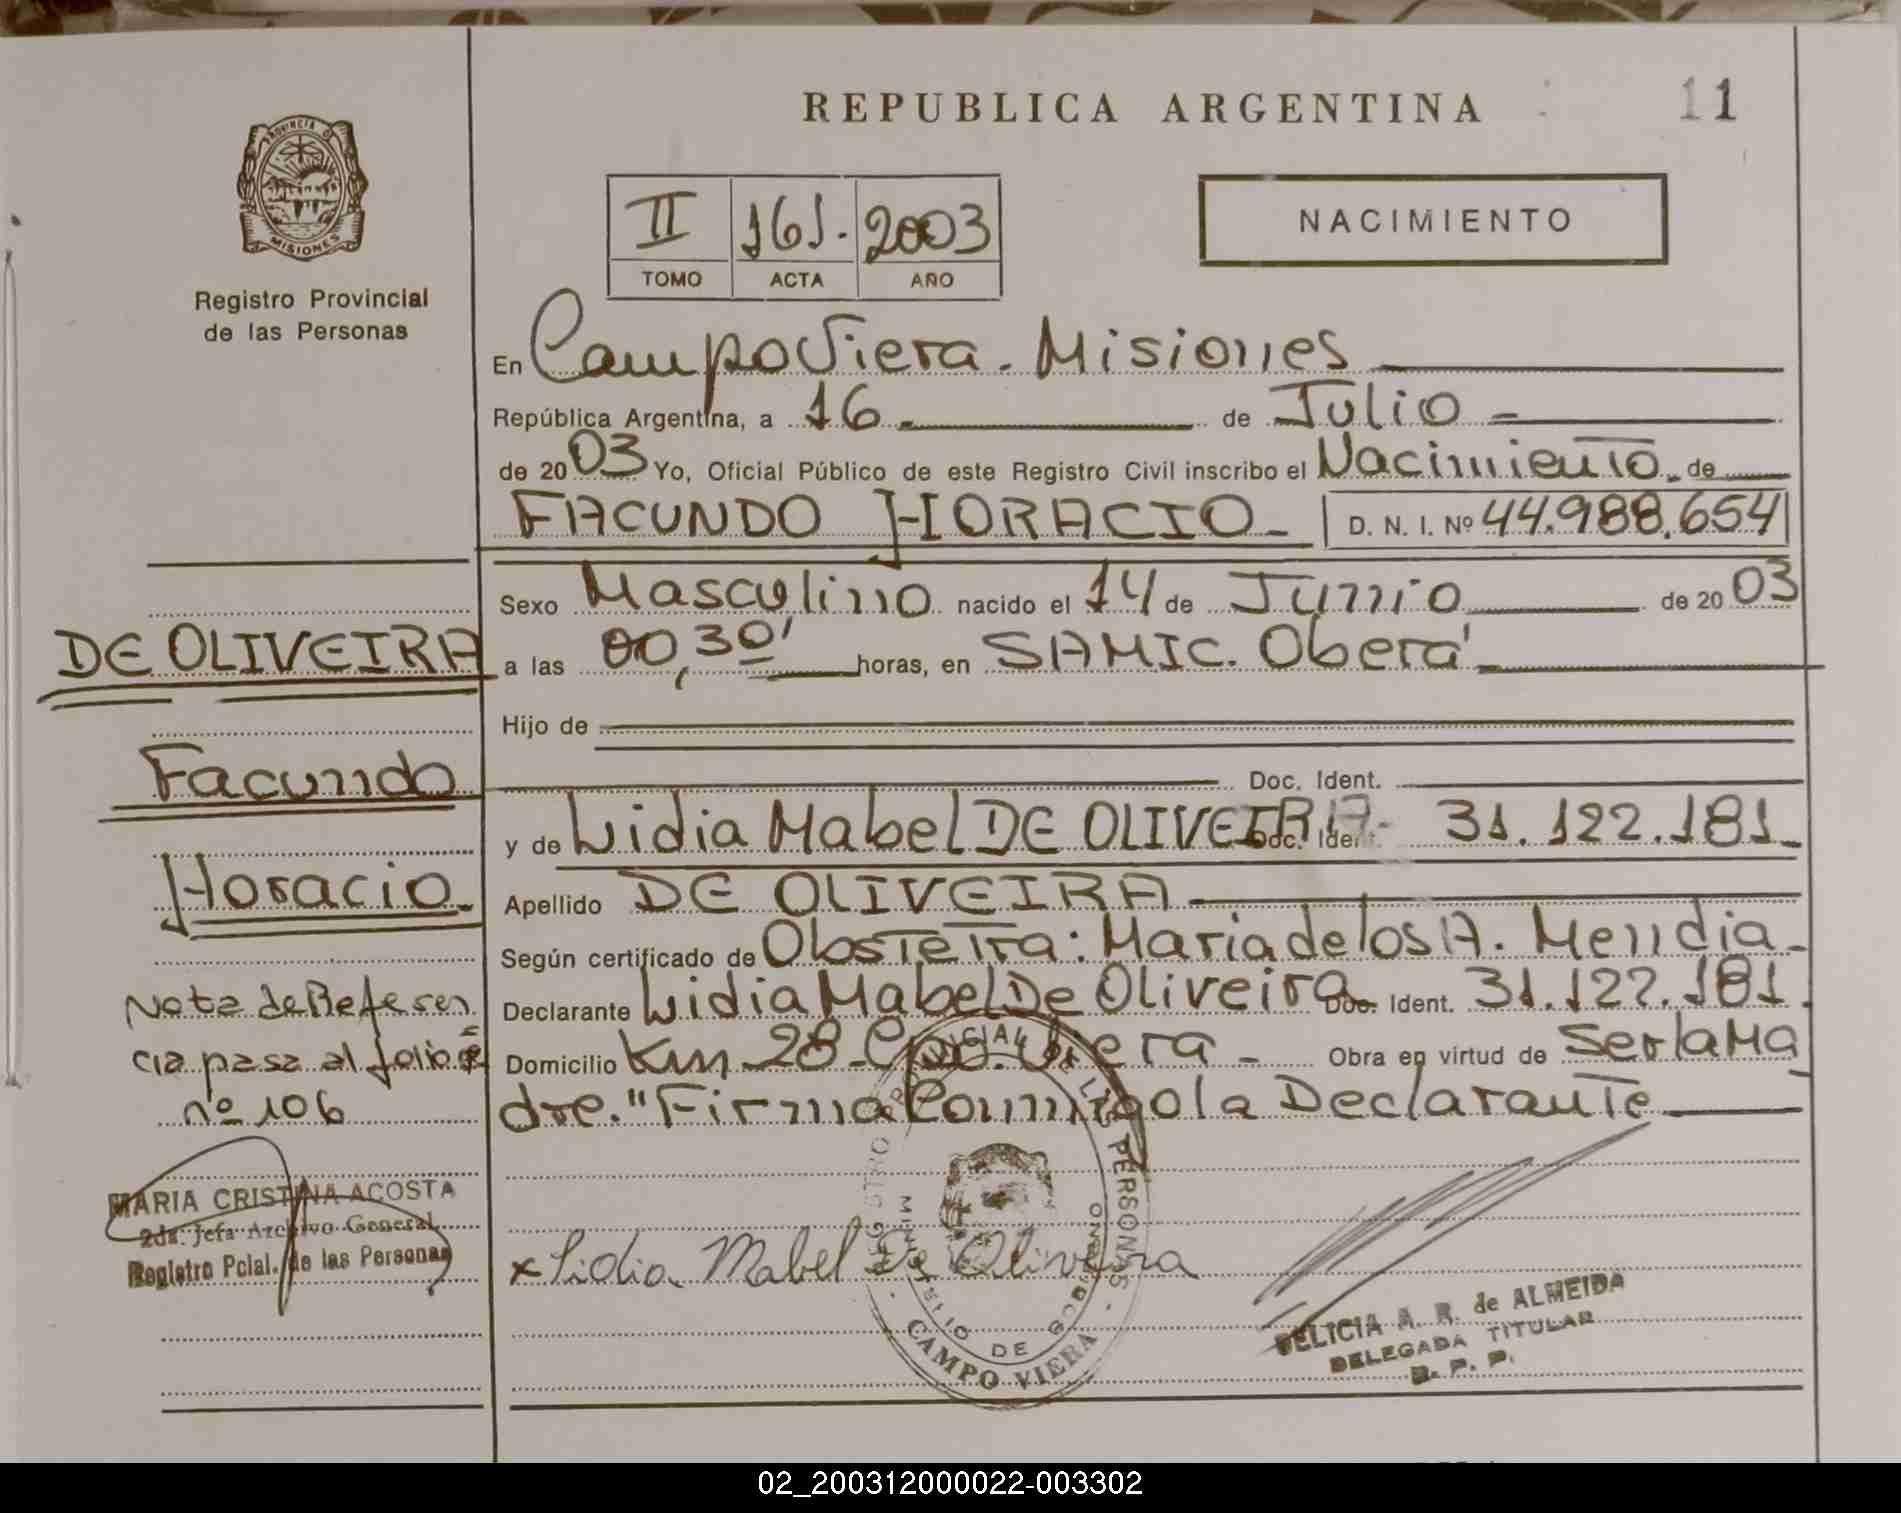 REPUBLICA ARGENTINA
11
PROVINCIA D
MISIONES
Registro Provincial
de las Personas
II 161. 2003
TOMO ACTA AÑO
NACIMIENTO
En Campo Viera. Misiones
República Argentina, a 16 de Julio
de 2003 Yo, Oficial Público de este Registro Civil inscribo el Nacimiento de
FACUNDO HORACIO D. N. I. Nº 44.988.654
Sexo Masculino nacido el 14 de Junio de 2003
a las 00,30' horas, en SAMIC. Oberá
Hijo de
Doc. Ident.
y de Lidia Mabel DE OLIVEIRA Doc. Ident. 31.122.181
Apellido DE OLIVEIRA
Según certificado de Obstetra: Maria de los A. Mendia
Declarante Lidia Mabel De Oliveira Doc. Ident. 31.122.181.
Domicilio Km 28 Cpo. Viera Obra en virtud de Ser la Ma
dre." Firma Conmigo la Declarante
x Lidia Mabel De Oliveira
DE OLIVEIRA
Facundo
Horacio
Nota de Referen
cia pasa al folio
nº 106
MARIA CRISTINA ACOSTA
2da. Jefa Archivo General
Registro Pcial. de las Personas
REGISTRO PROVINCIAL DE LAS PERSONAS
MINISTERIO DE GOBIERNO
CAMPO VIERA
FELICIA A. R. de ALMEIDA
DELEGADA TITULAR
R. P. P.
02_200312000022-003302